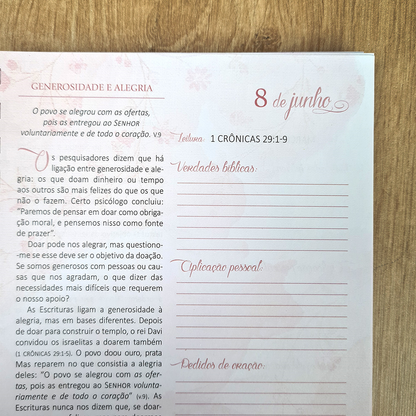 GENEROSIDADE E ALEGRIA
O povo se alegrou com as ofertas,
pois as entregou ao SENHOR
voluntariamente e de todo o coração. v.9
Os pesquisadores dizem que há
ligação entre generosidade e ale-
gria: os que doam dinheiro ou tempo
aos outros são mais felizes do que os que
não o fazem. Certo psicólogo concluiu:
"Paremos de pensar em doar como obriga-
ção moral, e pensemos nisso como fonte
de prazer".
Doar pode nos alegrar, mas questiono-
-me se esse deve ser o objetivo da doação.
Se somos generosos com pessoas ou cau-
sas que nos agradam, o que dizer das
necessidades mais difíceis que requerem
o nosso apoio?
As Escrituras ligam a generosidade à
alegria, mas em bases diferentes. Depois
de doar para construir o templo, o rei Davi
convidou os israelitas a doarem também
(1 CRÔNICAS 29:1-5). O povo doou ouro, prata
Mas reparem no que consistia a alegria
deles: "O povo se alegrou com as ofer-
tas, pois as entregou ao SENHOR volunta-
riamente e de todo o coração" (v.9). As
Escrituras nunca nos dizem que, se doar-
8 de junho
Leitura: 1 CRÔNICAS 29:1-9
Verdades bíblicas:
Aplicação pessoal:
Pedidos de oração: